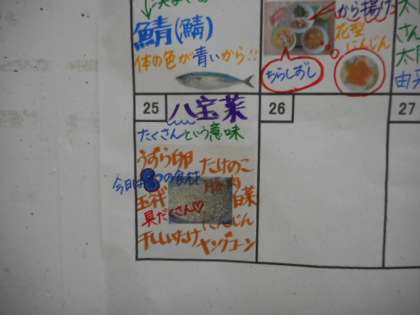 鯖(鯖)
体の色が青いから!!
から揚げ
花型
にんじん
ちらしずし
25
八宝菜
たくさんという意味
うずら卵
たけのこ
今日は8つの食材
玉ネギ
豚肉
白菜
具だくさん♡
にんじん
干ししいたけ
ヤングコーン
26
27